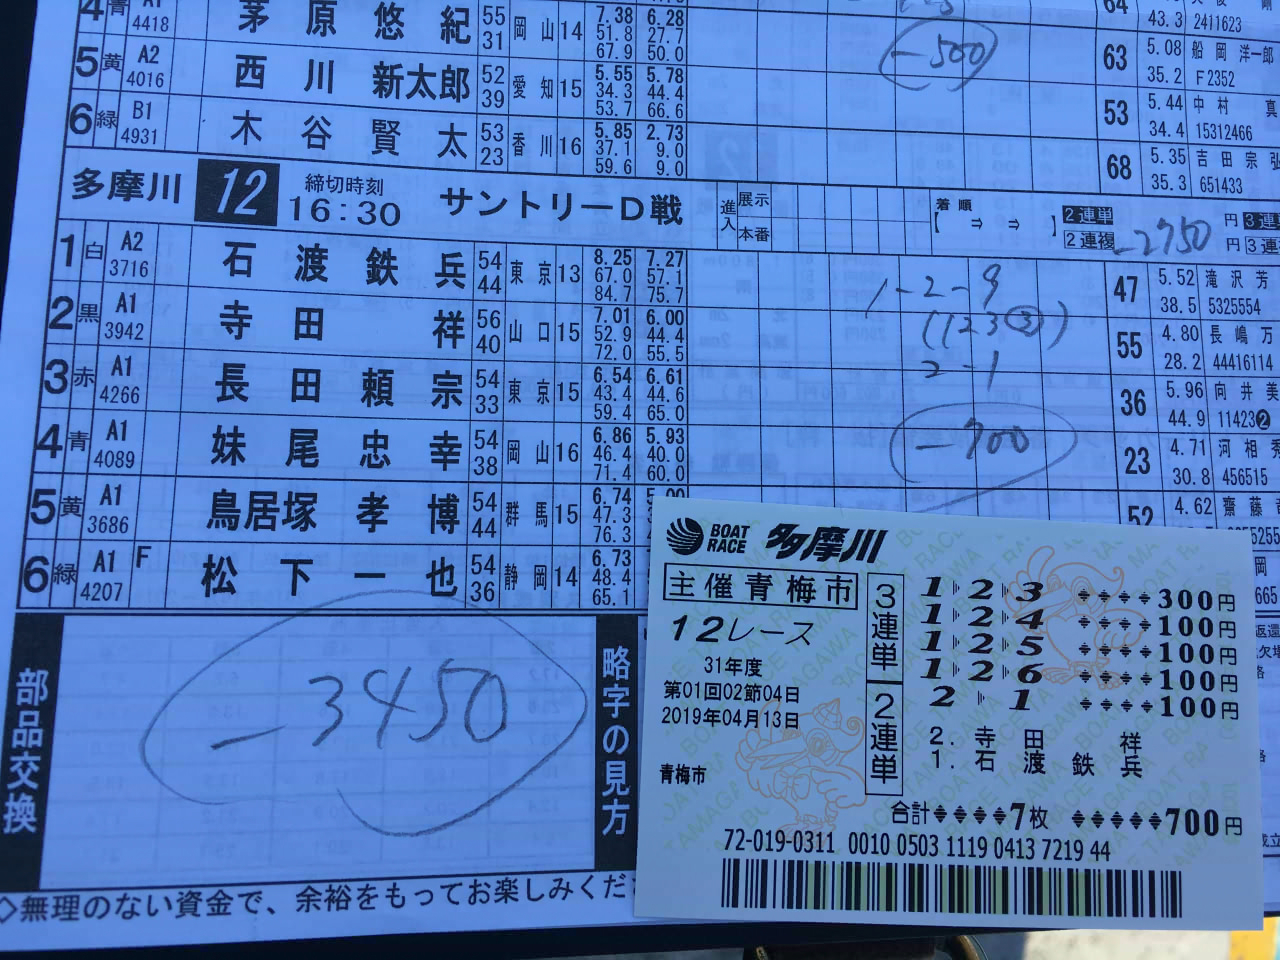 4 青 4418 茅原悠紀 55 31 岡山 14 7.38 6.28 51.8 27.7 67.9 50.0
64 43.3 2411623
-500
5 黄 A2 4016 西川新太郎 52 39 愛知 15 5.55 5.78 34.3 44.4 53.7 66.6
63 5.08 35.2 船岡洋一郎 F2352
6 緑 B1 4931 木谷賢太 53 23 香川 16 5.85 2.73 37.1 9.0 59.6 9.0
53 5.44 34.4 中村真 15312466
68 5.35 35.3 吉田宗弘 651433
多摩川 12 締切時刻 16:30 サントリーD戦 進入 展示 本番 着順 【 ⇒ ⇒ 】 2連単 円 3連
2連複 -2750 円 3連
1 白 A2 3716 石渡鉄兵 54 44 東京 13 8.25 7.27 67.0 57.1 84.7 75.7
47 5.52 38.5 滝沢芳 5325554
1-2-9
2 黒 A1 3942 寺田祥 56 40 山口 15 7.01 6.00 52.9 44.4 72.0 55.5
(123③)
55 4.80 28.2 長嶋万 44416114
3 赤 A1 4266 長田頼宗 54 33 東京 15 6.54 6.61 43.4 44.6 59.4 65.0
2-1
36 5.96 44.9 向井美 11423❷
4 青 A1 4089 妹尾忠幸 54 38 岡山 16 6.86 5.93 46.4 40.0 71.4 60.0
-700
23 4.71 30.8 河相秀 456515
5 黄 A1 3686 鳥居塚孝博 54 44 群馬 15 6.74 5.00 47.3 76.3
52 4.62 齋藤
6 緑 A1 4207 F 松下一也 54 36 静岡 14 6.73 48.4 65.1
部品交換
-3450
略字の見方
◇無理のない資金で、余裕をもってお楽しみくだ
BOAT RACE 多摩川
主催青梅市
12レース
31年度
第01回02節04日
2019年04月13日
青梅市
3連単
1 2 3 300円
1 2 4 100円
1 2 5 100円
1 2 6 100円
2連単
2 1 100円
2. 寺田祥
1. 石渡鉄兵
合計 7枚 700円
72-019-0311 0010 0503 1119 0413 7219 44